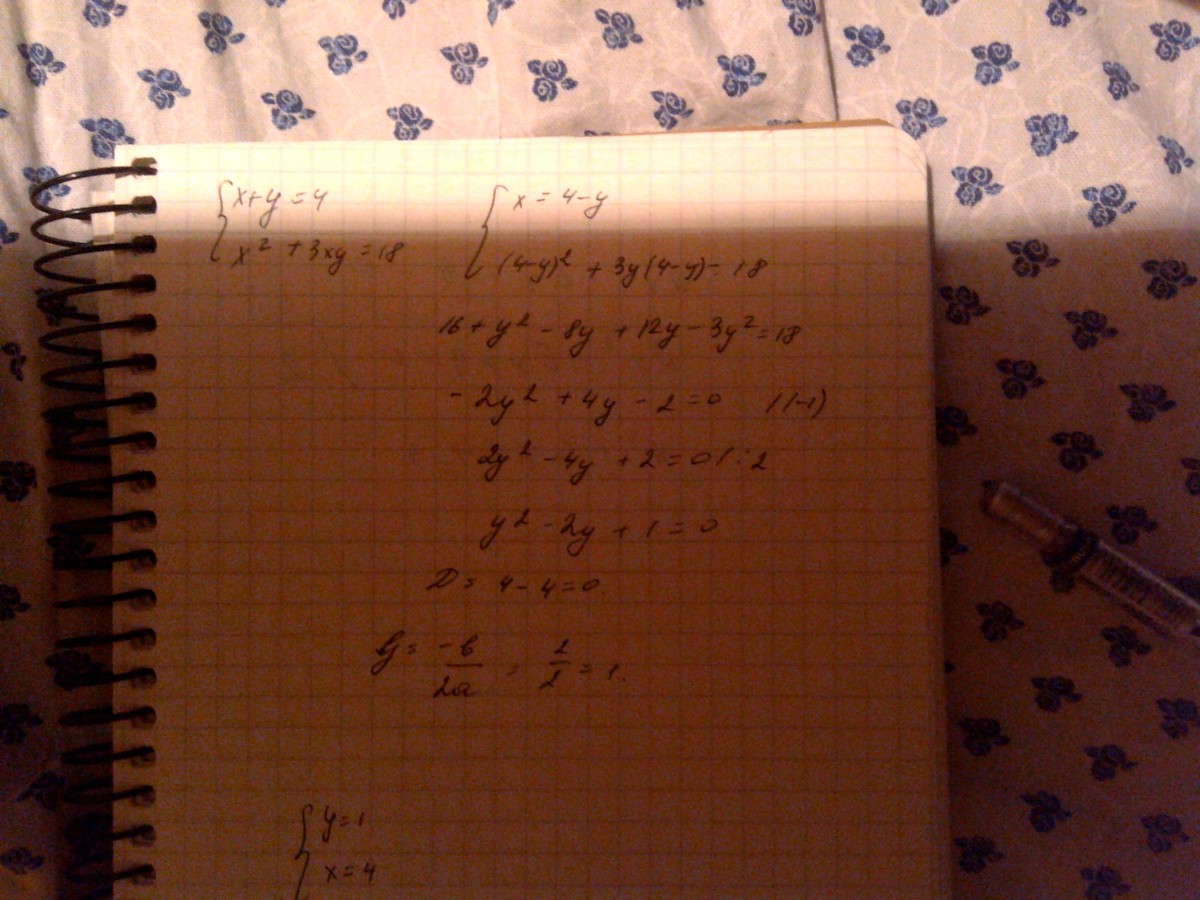 x+y=4
x² +3xy=18
x=4-y
(4-y)² + 3y(4-y)= 18
16+y² - 8y +12y-3y²=18
-2y² +4y -2=0 /(-1)
2y² -4y +2=0/:2
y² -2y +1=0
D= 4-4=0.
y= -b/2a = 2/2 =1.
y=1
x=4